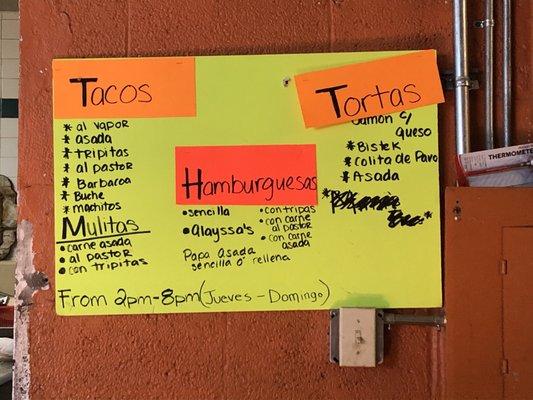 Tacos
* al vapor
* asada
* tripitas
* al pastor
* Barbacoa
* Buche
* machitos
Mulitas
• carne asada
• al pastor
• con tripitas
Hamburguesas
• sencilla
• Alayssa's
• con tripas
• con carne
al pastor
• con carne
asada
Papa Asada
sencilla o' rellena
Tortas
Jamon c/
queso
* Bistek
* Colita de Pavo
* Asada
From 2pm-8pm (Jueves - Domingo)
THERMOMETE